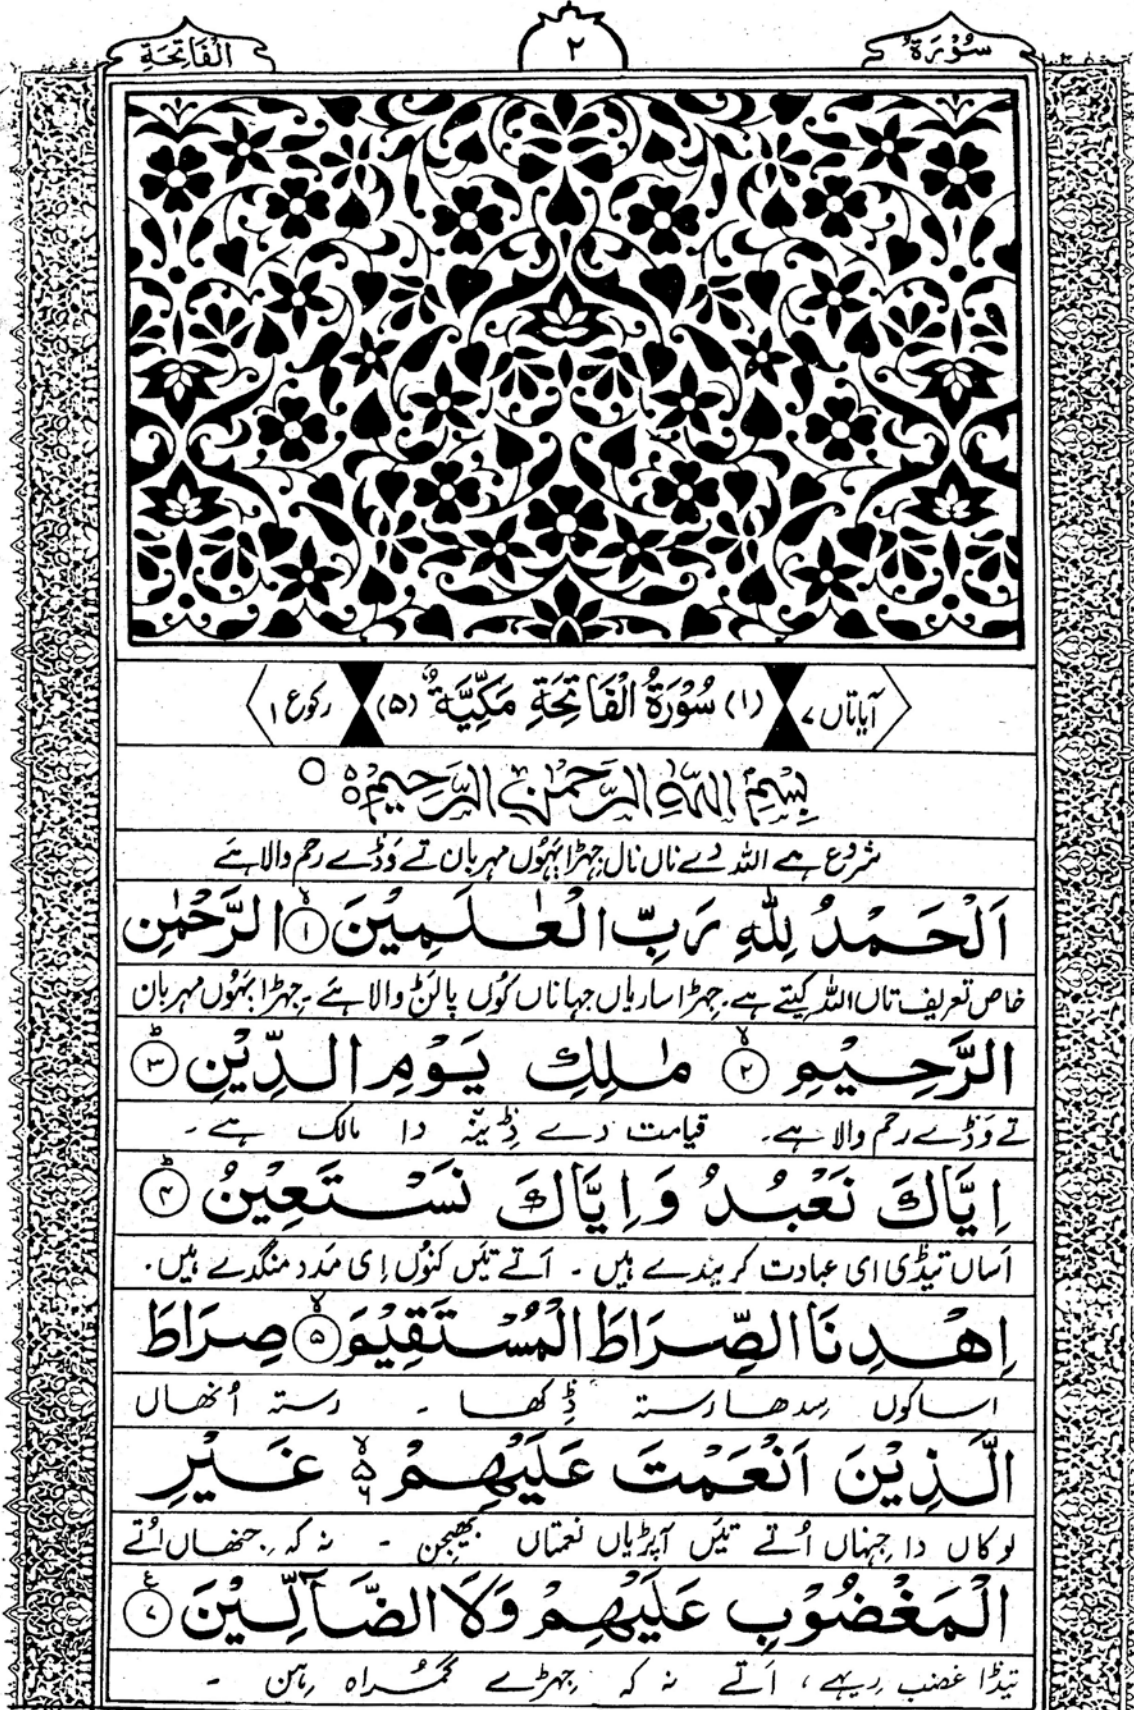 سُوْرَةُ ٢ الْفَاتِحَةِ
آیاتاں ٧ (١) سُوْرَةُ الْفَاتِحَةِ مَكِّيَّةٌ (٥) رکوع ١
بِسْمِ اللّٰهِ الرَّحْمٰنِ الرَّحِيْمِ
شروع ہے اللہ دے ناں نال جِہڑا بَہُوں مہربان تے وَڈے رحم والا ہَے
اَلْحَمْدُ لِلّٰهِ رَبِّ الْعٰلَمِيْنَ ١ الرَّحْمٰنِ
خاص تعریف تاں اللہ کیتے ہے۔ جِہڑا ساریاں جہاناں کوں پالݨ والا ہَے۔ جِہڑا بَہُوں مہربان
الرَّحِيْمِ ٢ مٰلِكِ يَوْمِ الدِّيْنِ ٣
تے وَڈے رحم والا ہے۔ قیامت دے ڈِینہ دا مالک ہے۔
اِيَّاكَ نَعْبُدُ وَاِيَّاكَ نَسْتَعِيْنُ ٤
اَساں تیڈی ای عبادت کریندے ہیں۔ اَتے تَیں کنوُں اِی مَدد منگدے ہیں۔
اِهْدِنَا الصِّرَاطَ الْمُسْتَقِيْمَ ٥ صِرَاطَ
اساکوں سِدھا رستہ ڈِکھا۔ رستہ اُنھاں
الَّذِيْنَ اَنْعَمْتَ عَلَيْهِمْ ٦ غَيْرِ
لوکاں دا جِنہاں اُتے تئیں آپڑیاں نعمتاں بھیجن۔ نہ کہ جنھاں اُتے
الْمَغْضُوْبِ عَلَيْهِمْ وَلَا الضَّآلِّيْنَ ٧
تیڈا غضب رِیہے، اَتے نہ کہ جِہڑے گمُراہ رِہن۔